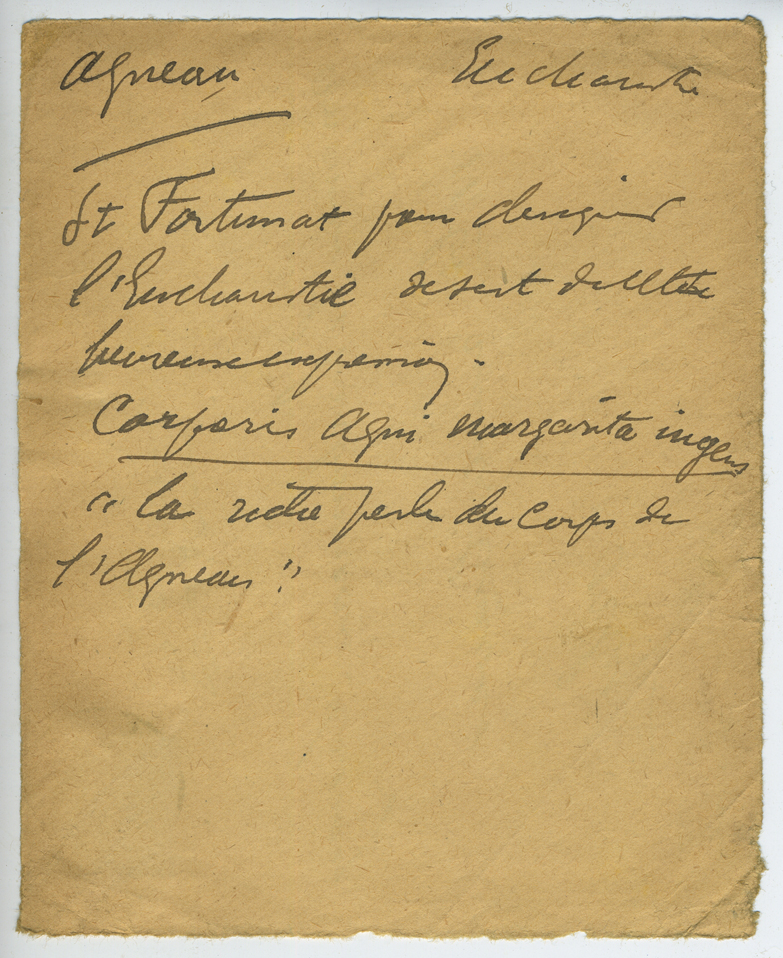 Agneau Eucharistie
St Fortunat pour designer
l'Eucharistie se sert de cette
heureuse expression.
Corporis Agni margarita ingens
"la riche perle du corps de
l'Agneau".